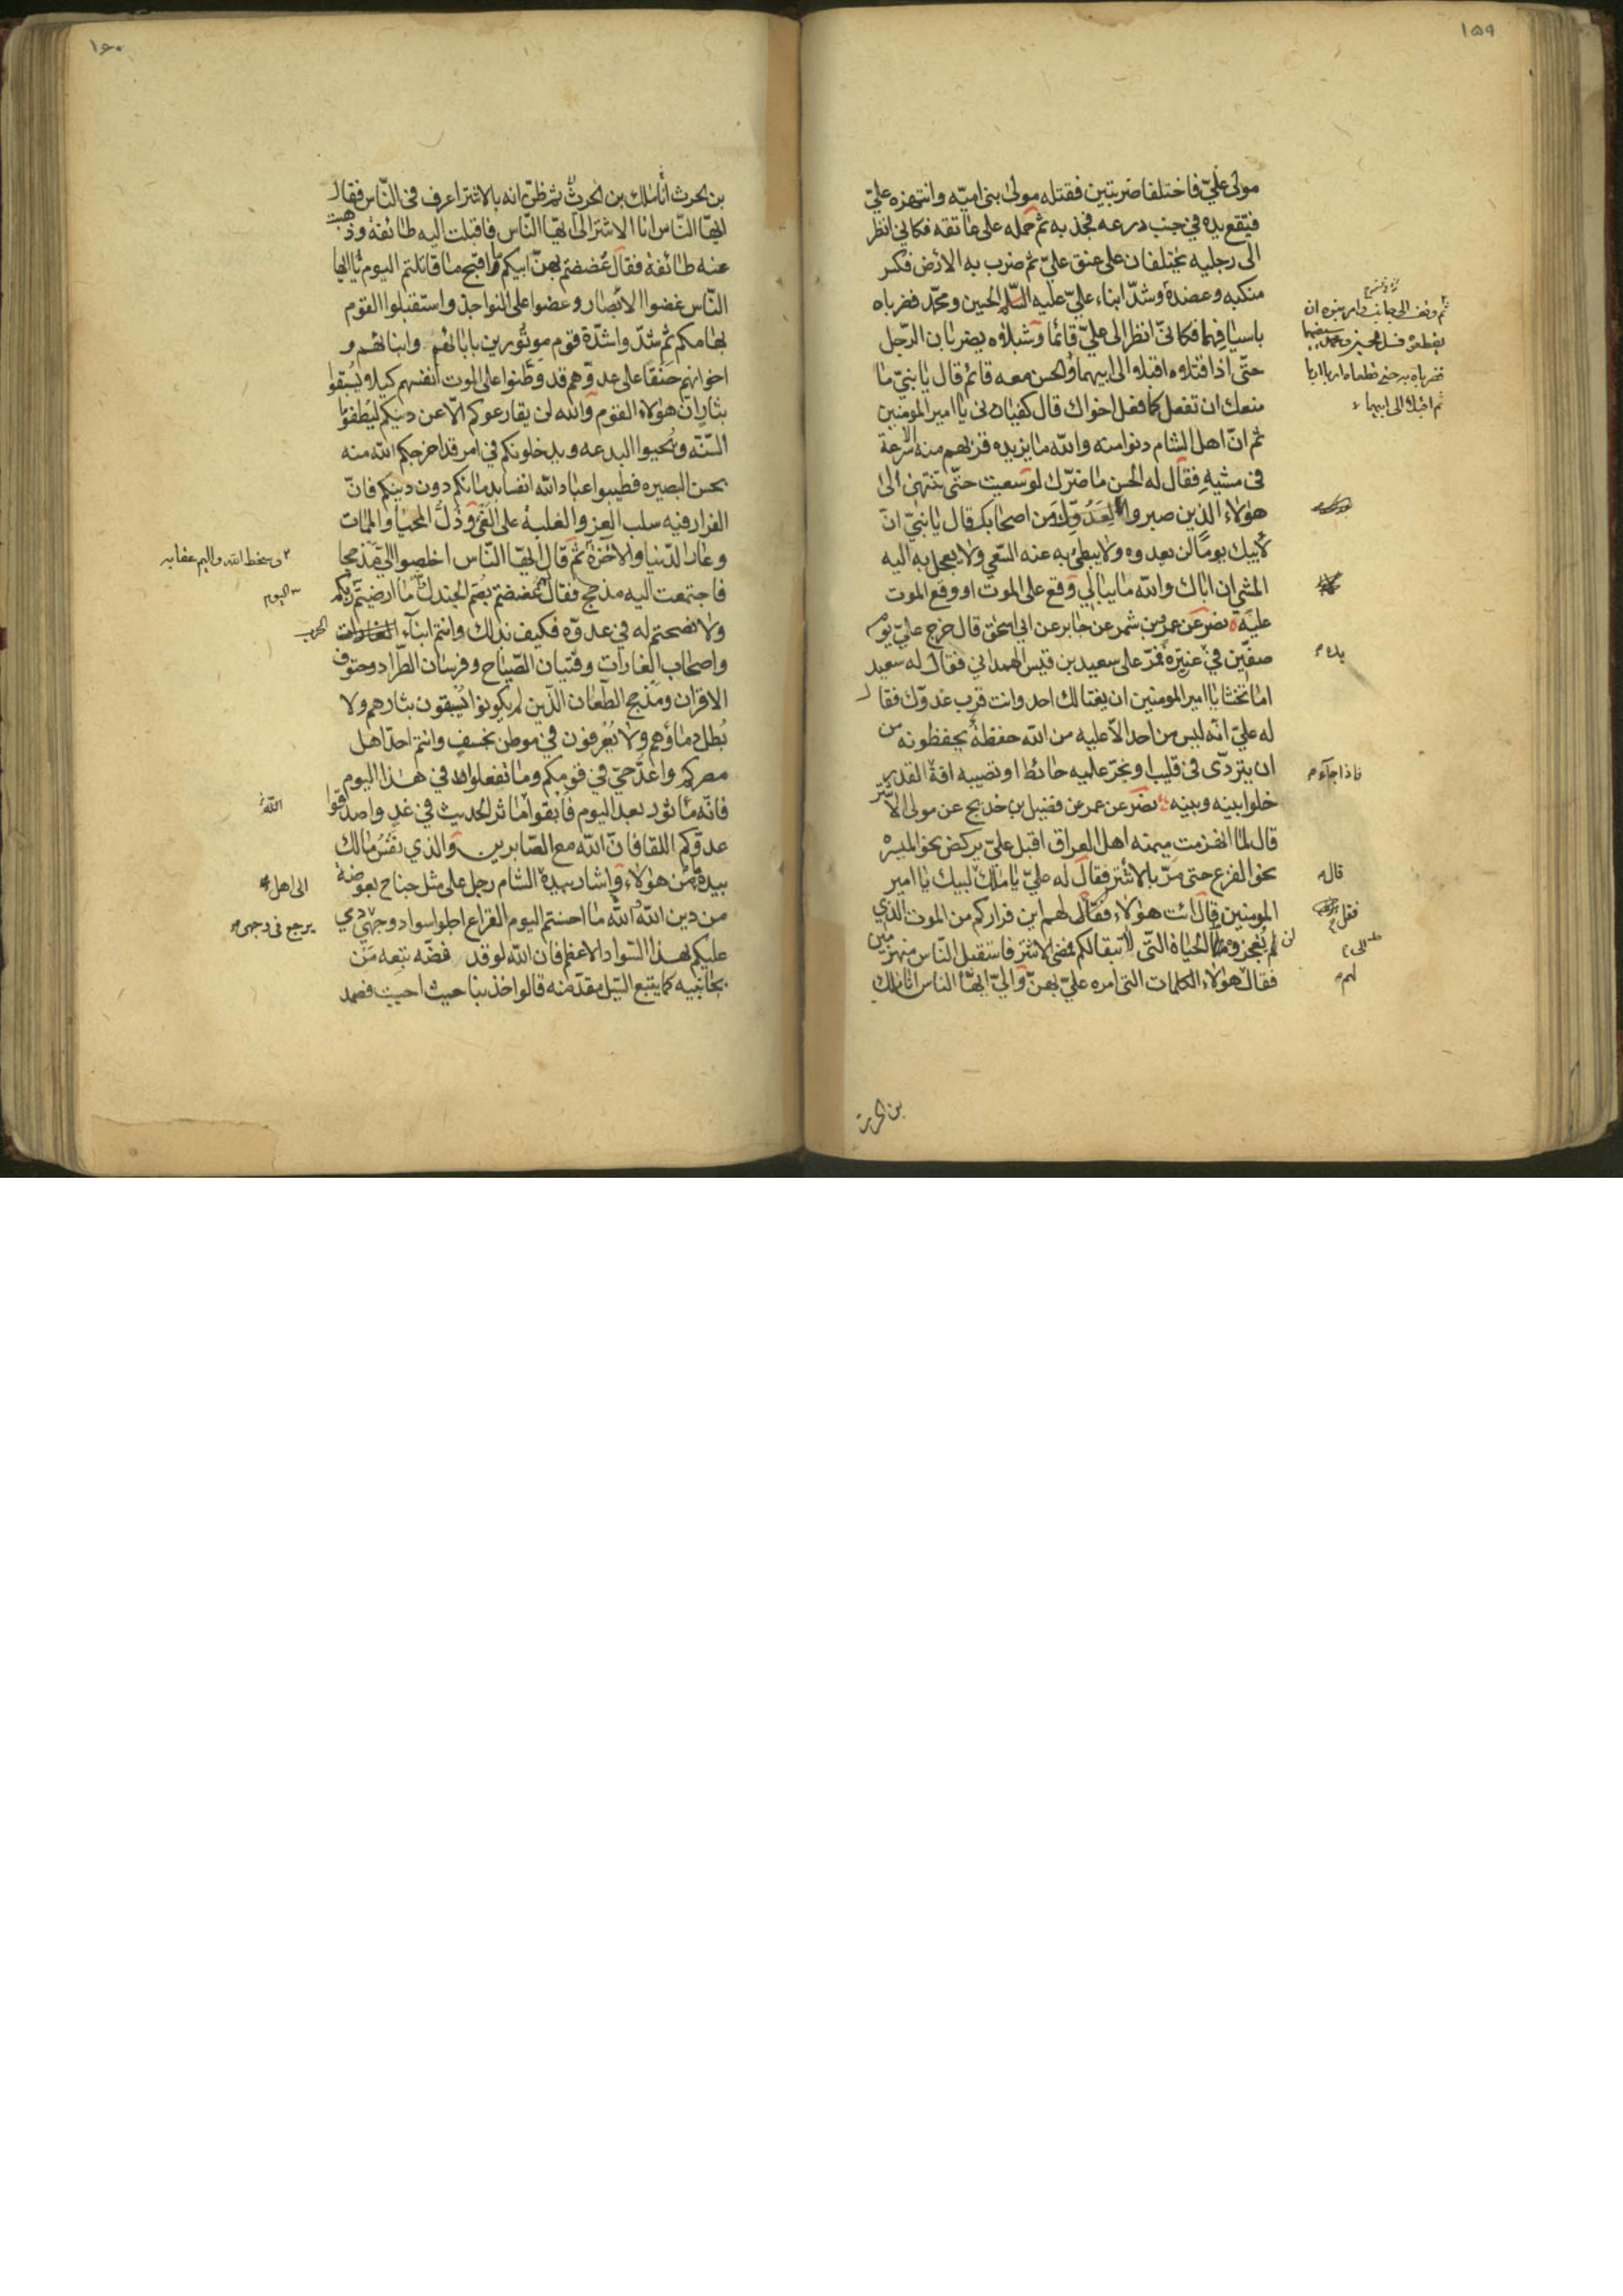 ١٥٩
مولى عليّ فاختلفا ضربتين فقتله مولى بنى اميّه وانتهزه عليّ
فيقع يده في جيب درعه فجذبه ثم حمله على عاتقه فكاني انظر
الى رجليه يختلفان على عنق عليّ ثم ضرب به الارض فكسر
منكبه وعضده وشدّ ابناء عليّ عليه السّلم الحسين ومحمّد فضرباه
باسيافهما فكانىّ انظر الى عليّ قائما وشبلاه يضربان الرّجل
حتّى اذا قتلاه اقبلا الى ابيهما والحسن معه قائم قال يا بنيّ ما
منعك ان تفعل كما فعل اخواك قال كفيانى يا امير المومنين
ثم انّ اهل الشام دنوا منه والله ما يزيده قربهم منه سرعة
فى مشيه فقال له الحسن ما ضرّك لو سعيت حتّى تنتهى الى
هؤلاء الذين صبروا لعدوّك من اصحابك قال يا بنيّ انّ
لأبيك يوماً لن يعدوه ولا يبطئ به عنه السّعي ولا يعجل به اليه
المشي ان اباك والله ما يبالي وقع على الموت او وقع الموت
عليه نصر عن عمرو بن شمر عن جابر عن ابي اسحق قال خرج عليّ يوم
صفّين في عنيزه فمرّ على سعيد بن قيس الهمداني فقال له سعيد
اما تخشا يا امير المومنين ان يغتالك احد وانت قرب عدوّك فقال
له عليّ انّه ليس من احد الاّ عليه من الله حفظة يحفظونه من
ان يتردّى فى قليب او يخرّ عليه حائط او تصيبه افة القدر
خلوا بينه وبينه نصر عن عمر عن فضيل بن خديج عن مولى الاشتر
قال لمّا انهزمت ميمنه اهل العراق اقبل عليّ يركض نحو الميسره
نحو الفزع حتى مرّ بالأشتر فقال له عليّ يا مالك لبيك يا امير
المومنين قال ائت هؤلاء فقال لهم اين فراركم من الموت الذي
لم يعجزوه الحياة التّى لا تبقا لكم فمضى الاشتر فاستقبل النّاس منهزمين
فقال هؤلاء الكلمات التى امره عليّ بهنّ والىّ ايهّا الناس انا مالك
فاذا جآء
قال
فقل
لن
لهم
بن الحرث
١٦٠
بن الحرث انا مالك بن الحرث ثم ظنّ انه بالاشتر اعرف فى النّاس فقال
ايهّا النّاس انا الاشتر الىّ ايهّا النّاس فاقبلت اليه طائفة وذهبت
عنه طائفة فقال عضضتم بهن ابيكم ما اقبح ما قاتلتم اليوم يا ايها
النّاس غضوا الابصار وعضوا على النواجذ واستقبلوا القوم
بهامكم ثم شدّوا شدّة قوم موتُورين بابائهم وابنائهم و
اخوانهم حنقا على عدوّهم قد وطّنوا على الموت انفسهم كيلا يُسبقوا
بثار انّ هؤلاء القوم والله لن يقارعوكم الاّ عن دينكم ليُطفؤا
السّنّه ويُحيوا البدعه ويدخلونكم في امر قد اخرجكم الله منه
بحسن البصيره فطيبوا عباد الله انفسا بدمائكم دون دينكم فانّ
الفرار فيه سلب العز والغلبة على الفئ وذُلّ المحيا والممات
وعار الدّنيا والآخرة ثم قال ايهّا النّاس اخلصوا اليّ مذحجا
فاجتمعت اليه مذحج فقال عضضتم بصُمّ الجندل ما ارضيتم ربكم
ولا نصحتم له في عدوّه فكيف بذلك وانتم ابنآء
واصحاب الغارات وفتيان الصّباح وفرسان الطّراد وحتوف
الاقران ومذحج الطّعان الذّين لم يكونوا يُسبقون بثارهم ولا
يُطل دماؤهم ولا يُعرفون في موطن بخسف وانتم احدّ اهل
مصركم واعدّ حيّ في قومكم وما تفعلوا في هذا اليوم
فانّه ماثور بعد اليوم فابقوا ماثر الحديث في غد واصدقوا
عدوّكم اللقا فانّ الله مع الصّابرين والذي نفس مالك
بيده ما من هؤلاء واشار بيده الشام رجل على مثل جناح بعوضة
من دين الله الله ما احسنتم اليوم القراع اجلوا سواد وجهي دمي
عليكم بهذا السّواد الاعظم فان الله لو قد فضّه تبعه من
بجانبيه كما يتبع السّيل مقدّمه قالوا خذ بنا حيث احببت فصمد
وسخط الله واليم عقابه
اليوم
الحرب
الله
الى اهل
يرجع فى وجهى